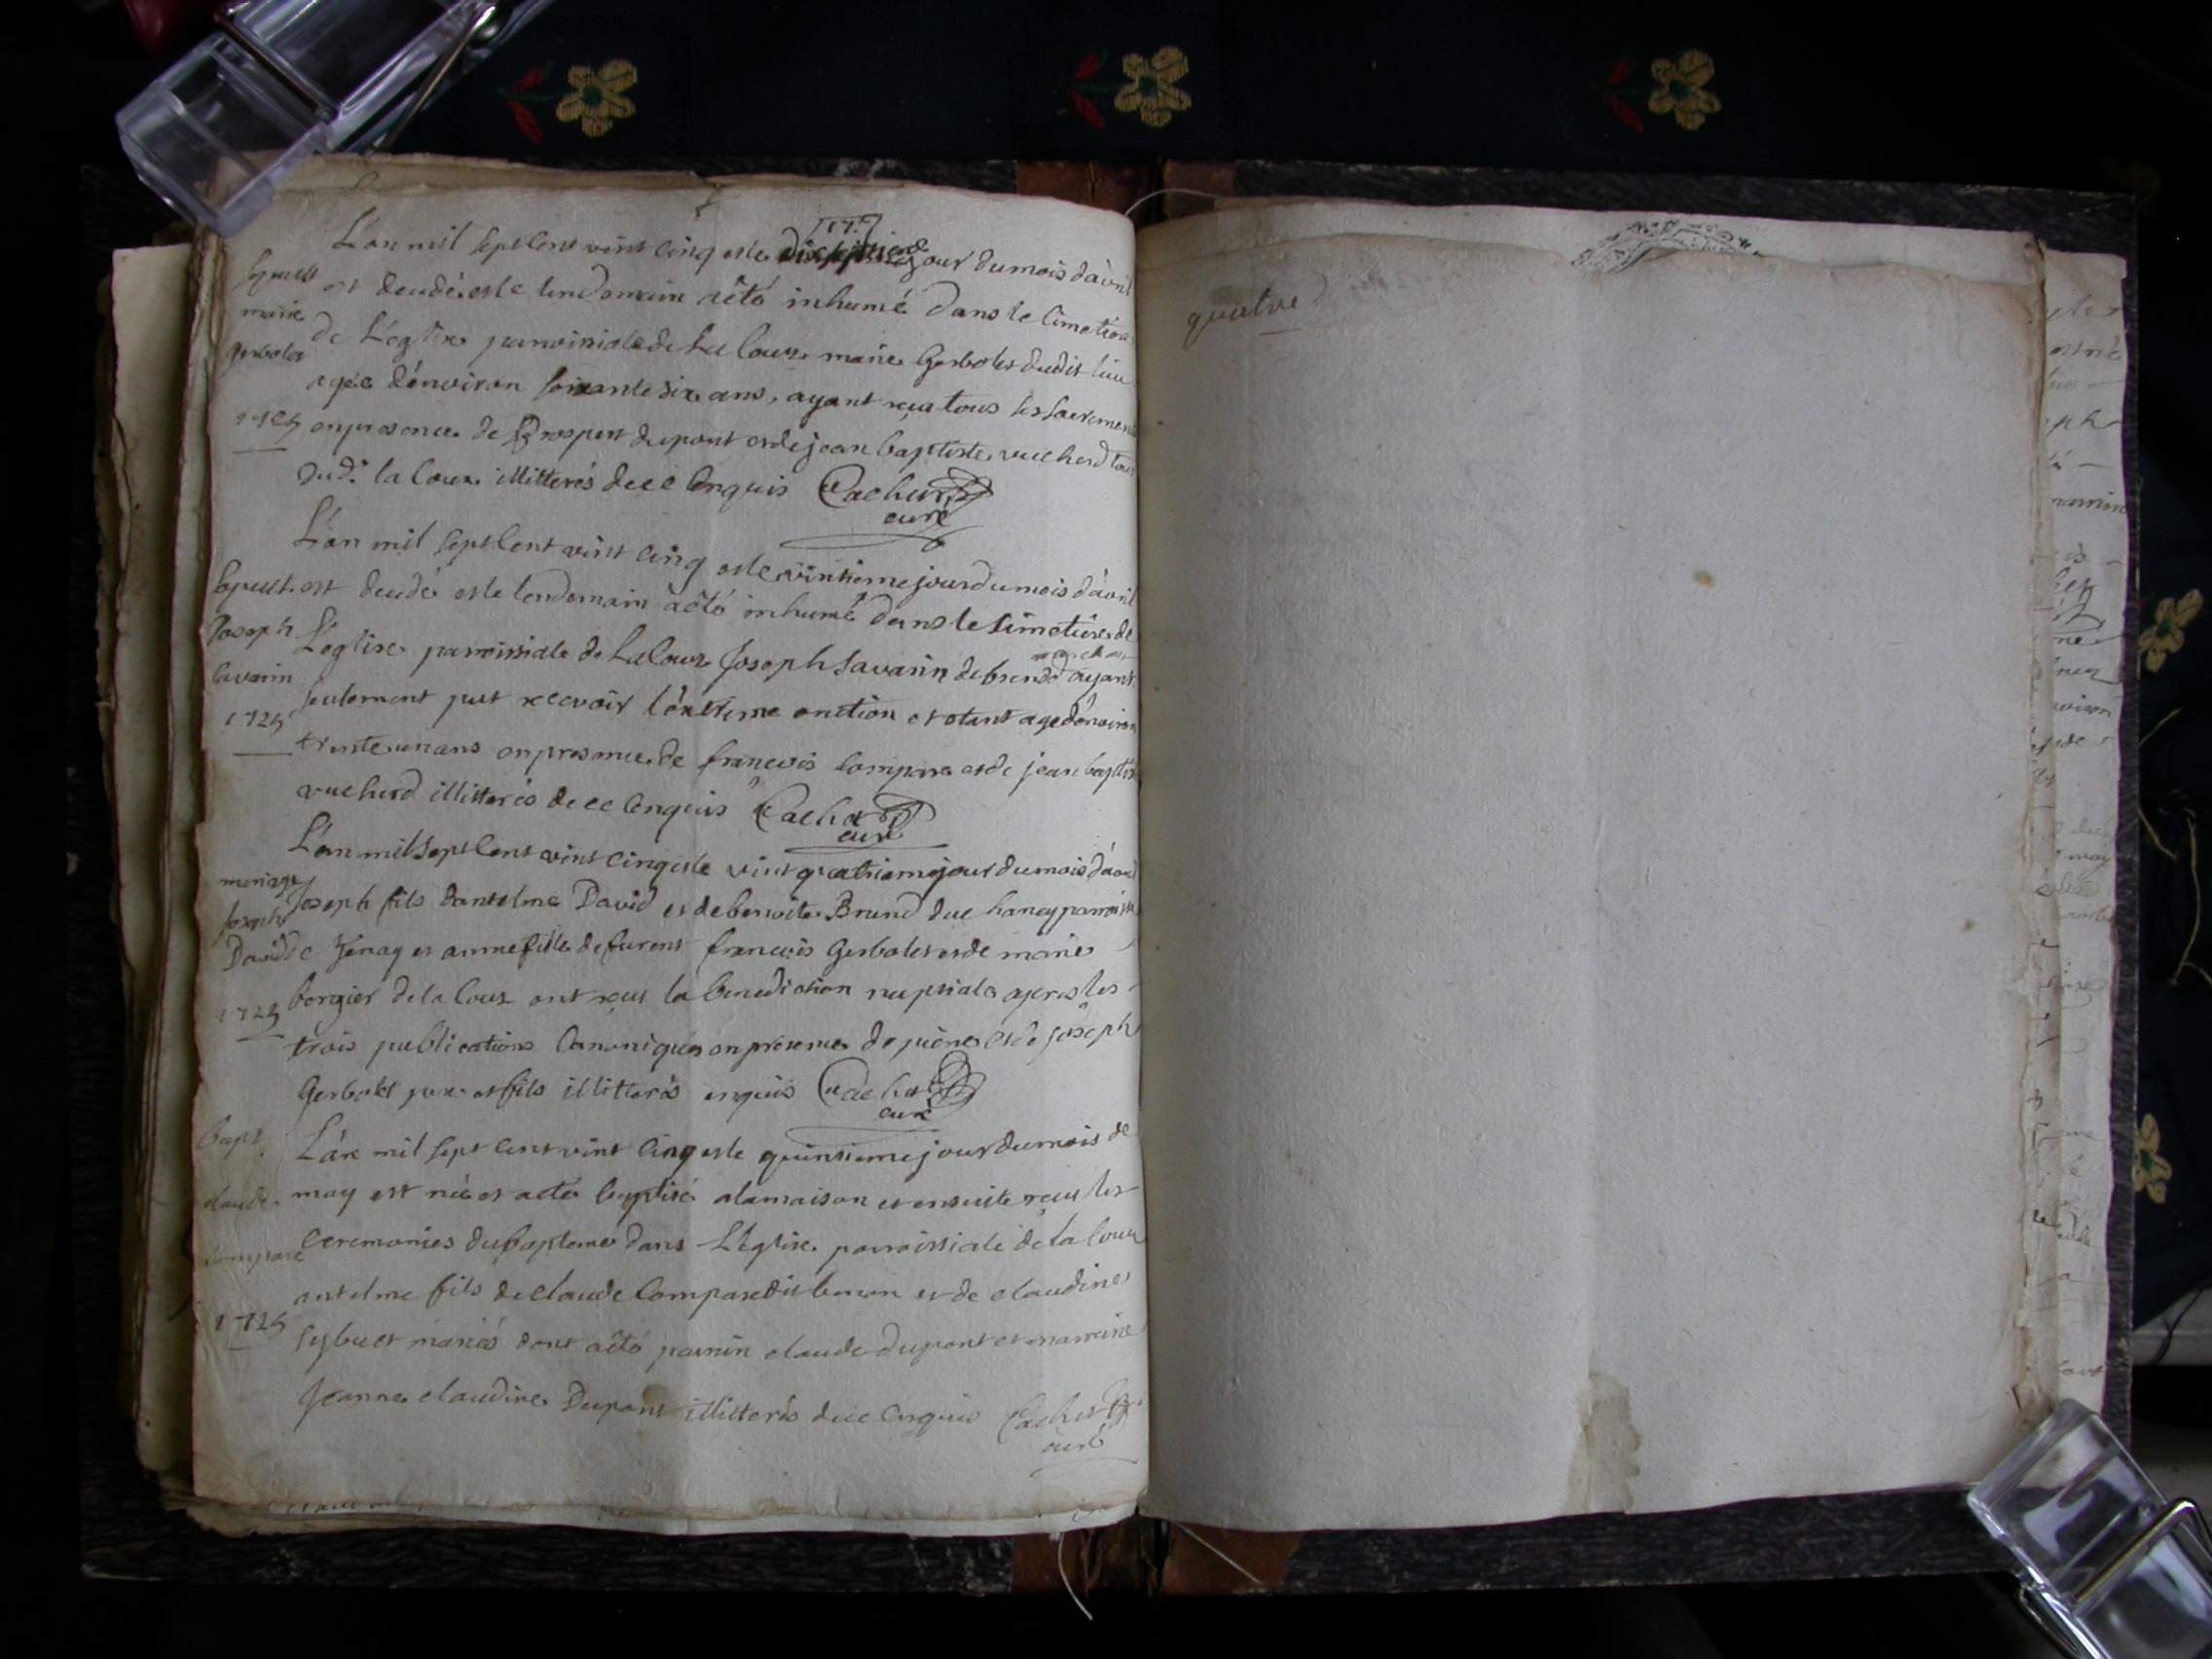 [17.]
L'an mil sept cent vint cinq et le dixseptieme jour du mois d'avril
est decedé et le lendemain a êté inhumé dans le cimetiere
de L'eglise parroissiale de La Coux marie Gerbolet dudit lieu
agée d'environ soixante six ans, ayant reçu tous les sacremens
en presence de Prospert dupont et de jean baptiste vucherd tous
dud. la Coux illitterés de ce enquis Cachet
curé
sepult
marie
gerbolet
1725
L'an mil sept cent vint cinq et le vintieme jour du mois d'avril
est decedé et le lendemain a êté inhumé dans le simetiere de
L'eglise parroissiale de La Coux Joseph Savarin de brenod ayant
seulement put recevoir l'extreme onction et etant age d'environ
trente un ans en presence de francois Compare et de jean baptiste
vucherd illitterés de ce enquis Cachet
curé
sepult.
Joseph
Savarin
1725
L'an mil sept cent vint cinq et le vint quatrieme jour du mois d'avril
Joseph fils d'antelme David et de benoite Brund du chaney parroisse
de Jenay et anne fille de furent francois Gerbolet et de marie
bergier de la Coux ont reçus la benediction nuptiale apres les
trois publications Canoniques en presence de pierre et de Joseph
Gerbolet pere et fils illitterés enquis Cachet
curé
mariage
Joseph
David
1725
L'an mil sept cent vint cinq et le quinsieme jour du mois de
may est né et a eté baptisé a la maison et ensuite reçu les
ceremonies du bapteme dans L'eglise parroissiale de la Coux
antelme fils de claude Compare dit benon et de claudine
Sybuet mariés dont a êté parrin claude dupont et marraine
Jeanne claudine Dupont illitterés de ce enquis Cachet
curé
bapt.
claude
Compare
1725
quatre